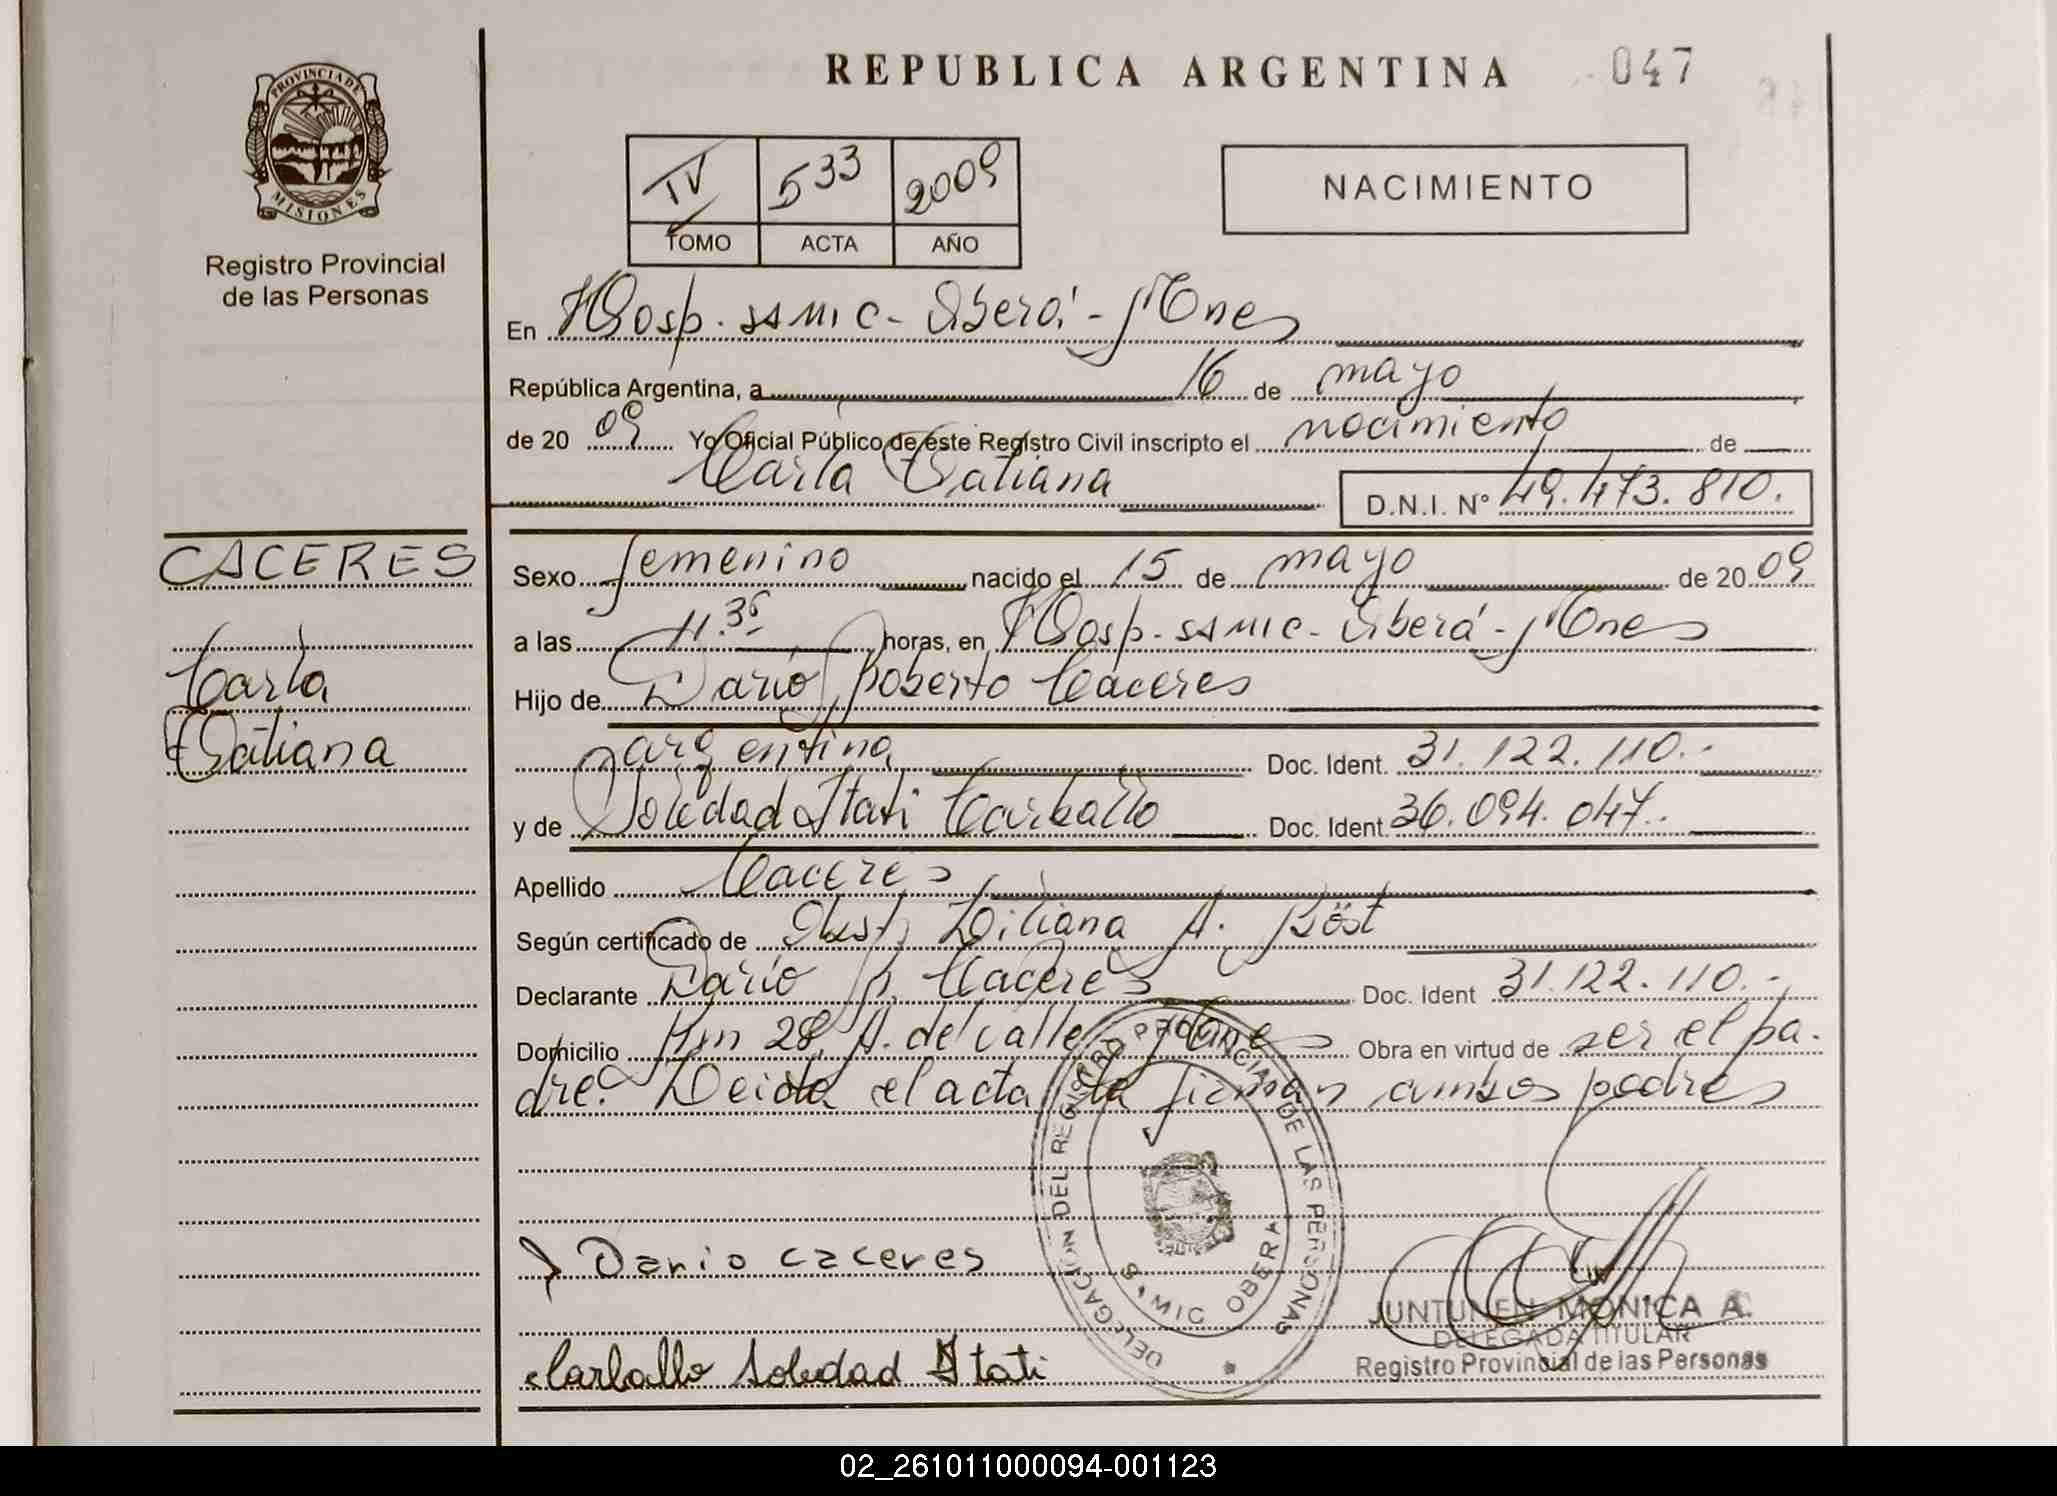 REPUBLICA ARGENTINA 047
PROVINCIA DE
MISIONES
Registro Provincial
de las Personas
IV 533 2009
TOMO ACTA AÑO
NACIMIENTO
En Hosp. SAMIC - Oberá - Mnes
República Argentina, a 16 de mayo
de 20 09 Yo Oficial Público de este Registro Civil inscripto el nacimiento de
Carla Tatiana D.N.I. Nº 49.473.810.
CACERES
Carla
Tatiana
Sexo femenino nacido el 15 de mayo de 20 09
a las 11.35 horas, en Hosp. SAMIC - Oberá - Mnes
Hijo de Darío Roberto Caceres
argentina Doc. Ident. 31.122.110.-
y de Soledad Itati Carballo Doc. Ident. 36.094.047.-
Apellido Caceres
Según certificado de Obst. Liliana A. Böst
Declarante Darío R. Caceres Doc. Ident 31.122.110.-
Domicilio Km 28, A. del Valle, Mnes Obra en virtud de ser el pa-
dre. Leida el acta la firman ambos padres
Dario caceres
Carballo Soledad Itati
DELEGACION DEL REGISTRO PROVINCIAL DE LAS PERSONAS
SAMIC OBERA
JUNTUNEN MONICA A.
DELEGADA TITULAR
Registro Provincial de las Personas
02_261011000094-001123